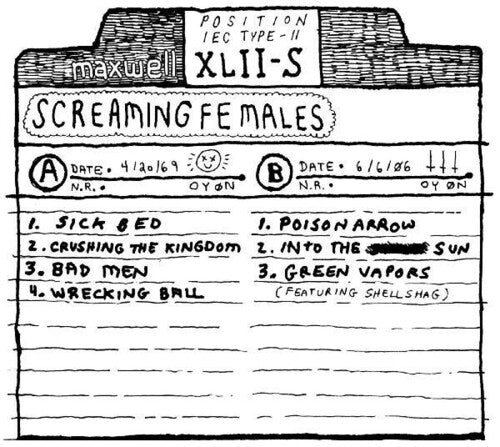 POSITION
IEC TYPE-II
maxwell XLII-S
SCREAMING FEMALES
A DATE • 4/20/69
N.R. • OY ØN
B DATE • 6/6/06
N.R. • OY ØN
1. SICK BED
2. CRUSHING THE KINGDOM
3. BAD MEN
4. WRECKING BALL
1. POISON ARROW
2. INTO THE SUN
3. GREEN VAPORS
(FEATURING SHELLSHAG)